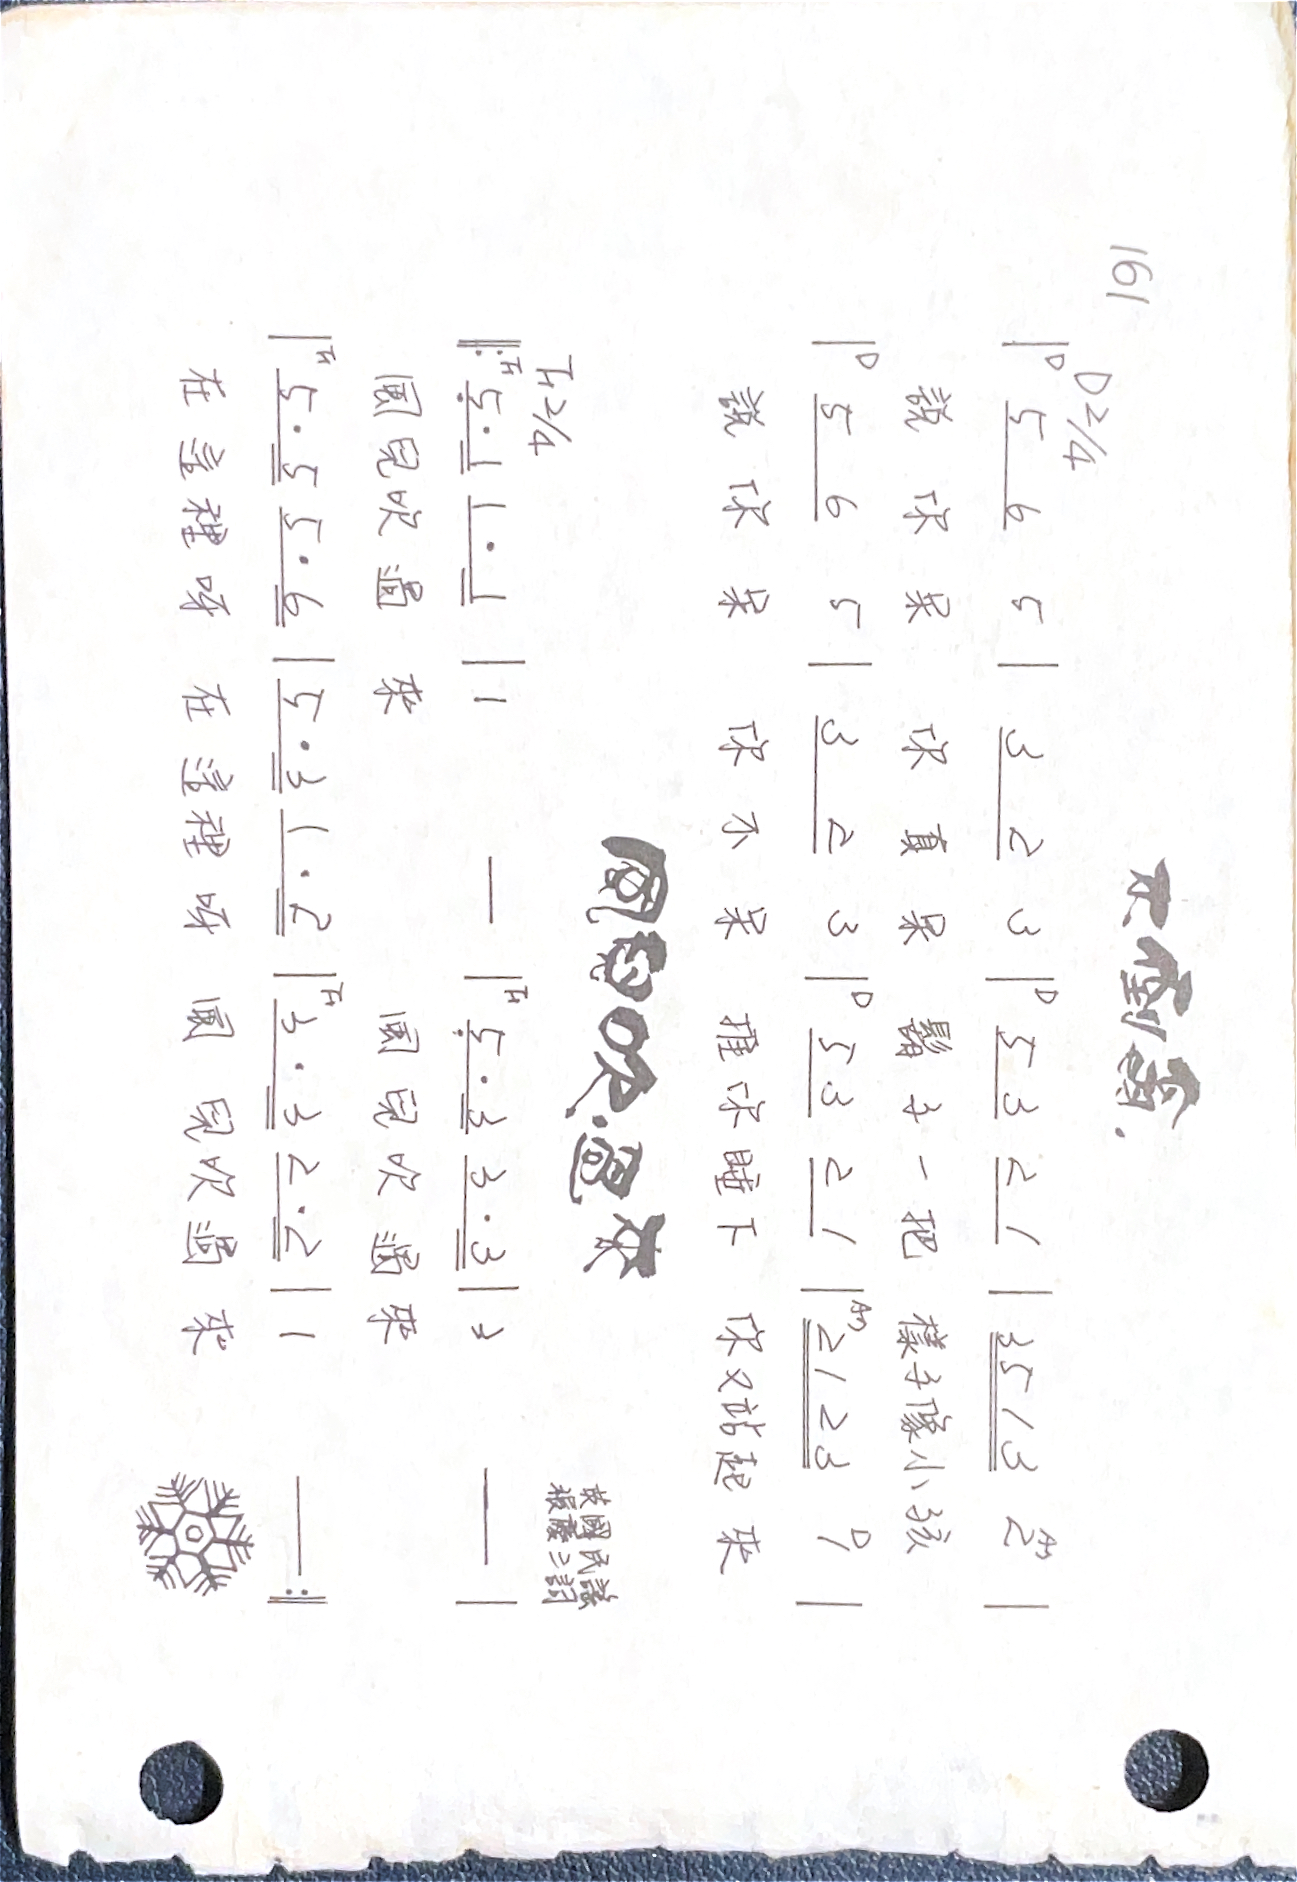 161
不倒翁.
D 2/4
|D 5 6 5 | 3 2 3 |D 5 3 2 1 | 3 5 1 3 A7 2 |
說 你 呆 你 真 呆 鬍 子 一 把 樣子像小孩
|D 5 6 5 | 3 2 3 |D 5 3 2 1 |A7 2 1 2 3 D 1 |
說 你 呆 你 不 呆 推 你 睡 下 你又站起 來
風兒吹過來
英國民謠
張慶三詞
F 2/4
‖:F 5·1 1·1 | 1 — |F 5·3 3·3 | 3 — |
風兒吹過 來 風兒吹過來
|F 5·5 5·6 | 5·3 1·2 |F 3·3 2·2 | 1 — :‖
在這裡呀 在這裡呀 風 兒吹過 來